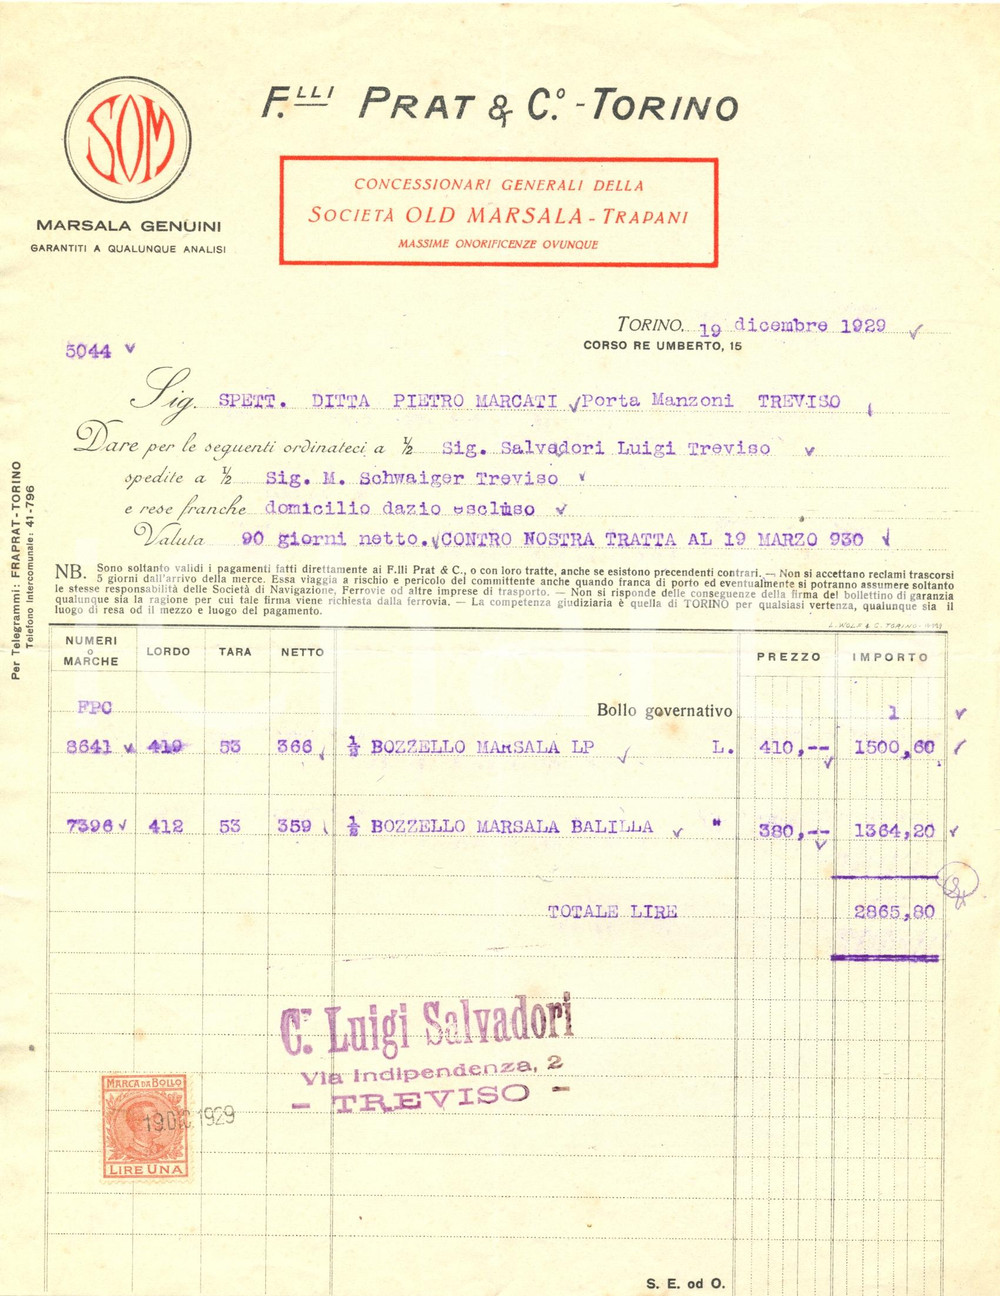 F.LLI PRAT & C.o - TORINO
SOM
MARSALA GENUINI
GARANTITI A QUALUNQUE ANALISI
CONCESSIONARI GENERALI DELLA
SOCIETÀ OLD MARSALA - TRAPANI
MASSIME ONORIFICENZE OVUNQUE
TORINO, 19 dicembre 1929
CORSO RE UMBERTO, 15
5044
Sig. SPETT. DITTA PIETRO MARCATI Porta Manzoni TREVISO
Dare per le seguenti ordinateci a ½ Sig. Salvadori Luigi Treviso
spedite a ½ Sig. M. Schwaiger Treviso
e rese franche domicilio dazio escluso
Valuta 90 giorni netto. CONTRO NOSTRA TRATTA AL 19 MARZO 930
Per Telegrammi: FRAPRAT-TORINO
Telefono Intercomunale: 41-796
NB. Sono soltanto validi i pagamenti fatti direttamente ai F.lli Prat & C., o con loro tratte, anche se esistono precedenti contrari. — Non si accettano reclami trascorsi
5 giorni dall'arrivo della merce. Essa viaggia a rischio e pericolo del committente anche quando franca di porto ed eventualmente si potranno assumere soltanto
le stesse responsabilità delle Società di Navigazione, Ferrovie od altre imprese di trasporto. — Non si risponde delle conseguenze della firma del bollettino di garanzia
qualunque sia la ragione per cui tale firma viene richiesta dalla ferrovia. — La competenza giudiziaria è quella di TORINO per qualsiasi vertenza, qualunque sia il
luogo di resa od il mezzo e luogo del pagamento.
NUMERI o MARCHE LORDO TARA NETTO PREZZO IMPORTO
FPC Bollo governativo 1
8641 419 53 366 ½ BOZZELLO MARSALA LP L. 410,-- 1500,60
7396 412 53 359 ½ BOZZELLO MARSALA BALILLA " 380,-- 1364,20
TOTALE LIRE 2865,80
C. Luigi Salvadori
Via Indipendenza, 2
- TREVISO -
MARCA DA BOLLO
19 DIC. 1929
LIRE UNA
S. E. od O.